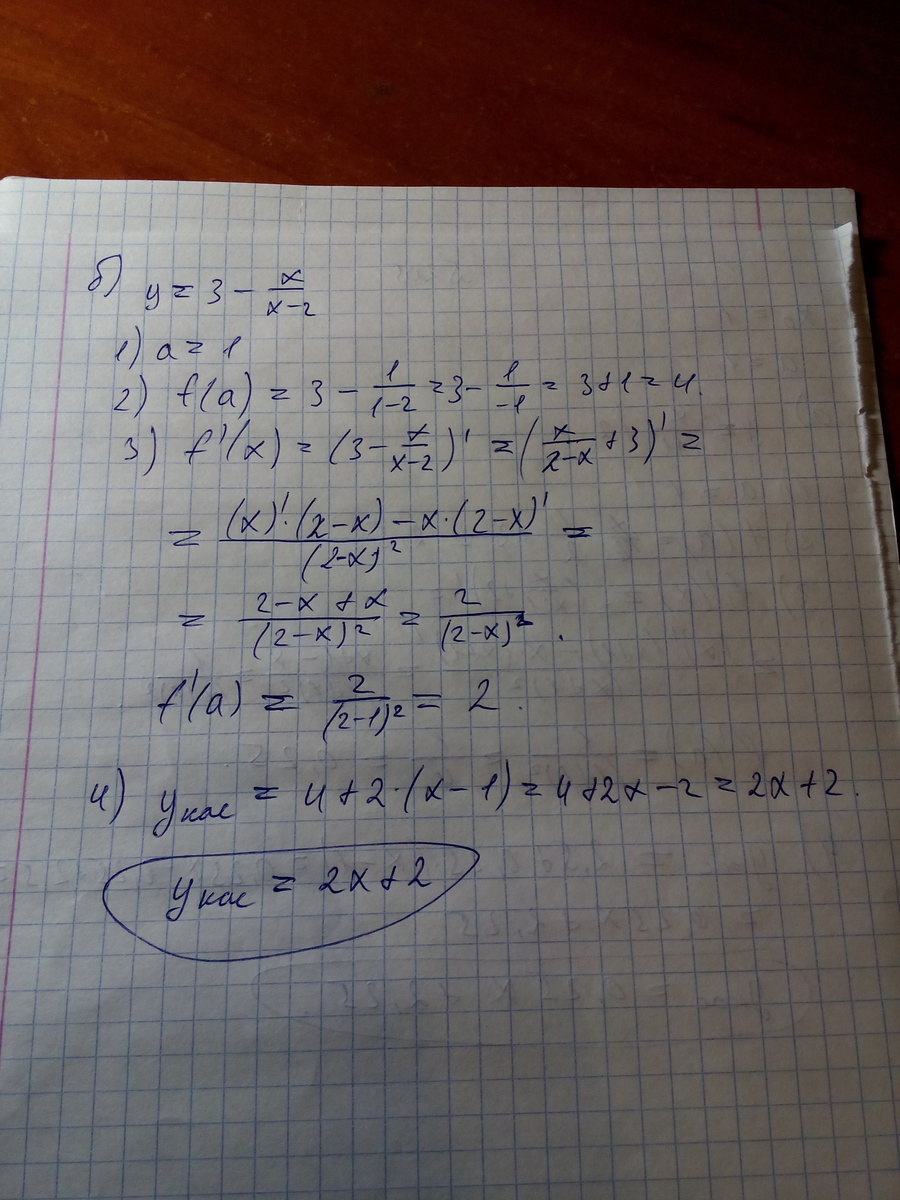 б) y = 3 - x/(x-2)
1) a = 1
2) f(a) = 3 - 1/(1-2) = 3 - 1/(-1) = 3+1 = 4.
3) f'(x) = (3 - x/(x-2))' = (x/(2-x) + 3)' =
= ((x)'·(2-x) - x·(2-x)')/(2-x)² =
= (2-x+x)/(2-x)² = 2/(2-x)².
f'(a) = 2/(2-1)² = 2.
4) yкас = 4+2·(x-1) = 4+2x-2 = 2x+2.
yкас = 2x+2